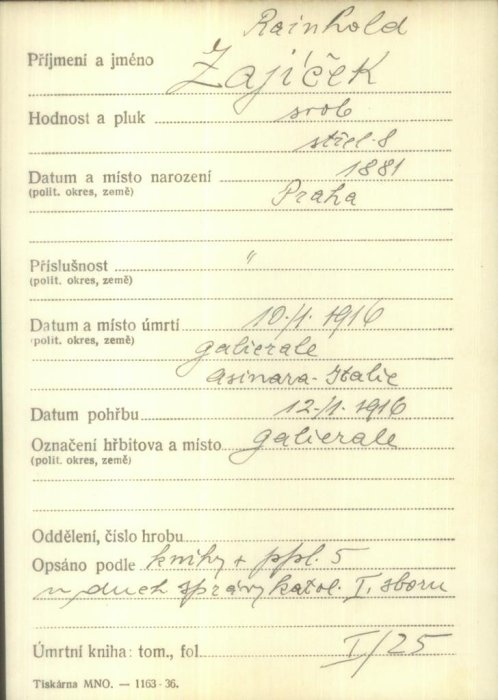 Rainhold
Příjmení a jméno Zajíček
Hodnost a pluk srob
střel. 8
1881
Datum a místo narození
(polit. okres, země) Praha
Příslušnost "
(polit. okres, země)
Datum a místo úmrtí 10./1. 1916
(polit. okres, země) galierale
Asinara - Italie
Datum pohřbu 12./1. 1916
Označení hřbitova a místo galierale
(polit. okres, země)
Oddělení, číslo hrobu
Opsáno podle knihy + ppl. 5
u duch správy katol. I. sboru
Úmrtní kniha: tom., fol. I/25
Tiskárna MNO. — 1163-36.